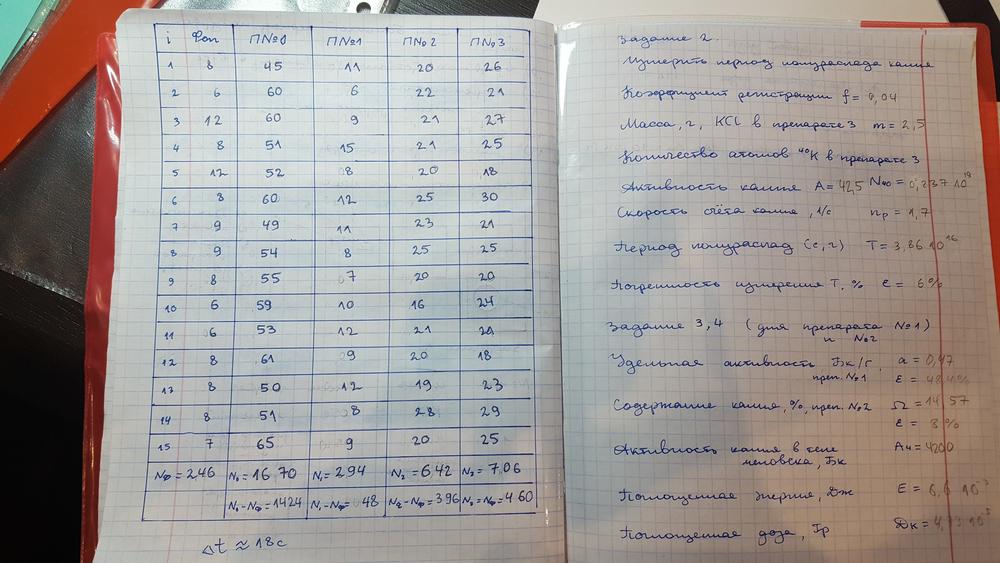 i Фон ПN°0 ПN°1 ПN°2 ПN°3
1 8 45 11 20 26
2 6 60 6 22 21
3 12 60 9 21 27
4 8 51 15 21 25
5 12 52 8 20 18
6 8 60 12 25 30
7 9 49 11 23 21
8 9 54 8 25 25
9 8 55 7 20 20
10 6 59 10 16 24
11 6 53 12 21
12 8 61 9 20 18
13 8 50 12 19 23
14 8 51 8 28 29
15 7 65 9 20 25
Nф = 246 N₀ = 1670 N₁ = 294 N₂ = 642 N₃ = 706
-Nф = 1424 N₁-Nф = 48 N₂-Nф = 396 N₃-Nф = 460
Δt ≈ 18с
Задание 2.
Измерить период полураспада калия
Коэффициент регистрации f = 0,04
Масса, г, KCl в препарате 3 m = 2,5
Количество атомов ⁴⁰K в препарате 3
Активность калия A = 42,5 N₄₀ = 0,237 10¹⁹
Скорость счёта калия, 1/с nр = 1,7
Период полураспад (с, г) T = 3,86 10¹⁶
Погренность измерения T, % ε = 6%
Задание 3,4 (для препарата N°1)
и N°2
Удельная активность, Бк/г, a = 0,47
преп. N°1 ε = 48,4%
Содержание калия, %, преп. N°2 Ω = 14,57
ε = 3%
Активность калия в теле Aч = 4200
человека, Бк
Поглощенная энергия, Дж E = 6,6 10⁻³
Поглощенная доза, Гр Dк =